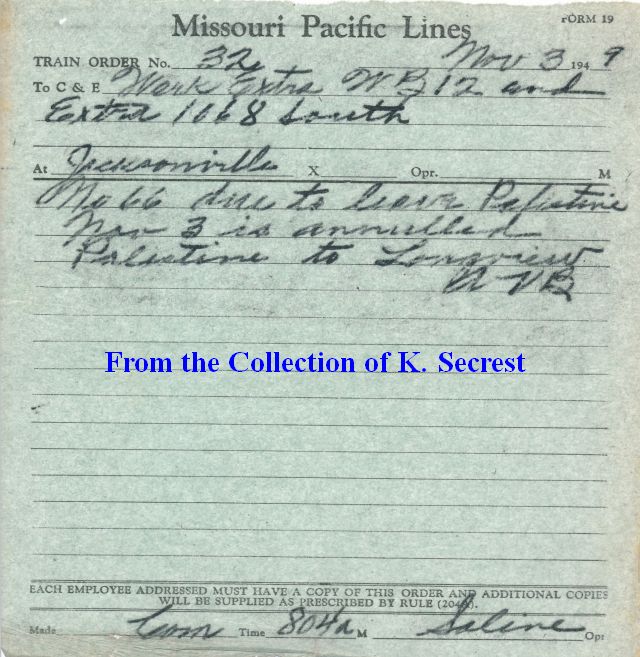 Missouri Pacific Lines
FORM 19
TRAIN ORDER No. 32 Nov 3 1949
To C & E Work Extra WB 12 and
Extra 1068 South
At Jacksonville X Opr. M
No 66 due to leave Palestine
Nov 3 is annulled
Palestine to Longview
AVB
From the Collection of K. Secrest
EACH EMPLOYEE ADDRESSED MUST HAVE A COPY OF THIS ORDER AND ADDITIONAL COPIES
WILL BE SUPPLIED AS PRESCRIBED BY RULE
Made Com Time 804a M Saline Opr